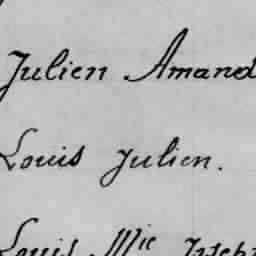 Julien Amand
Louis Julien.
Louis Mie Joseph